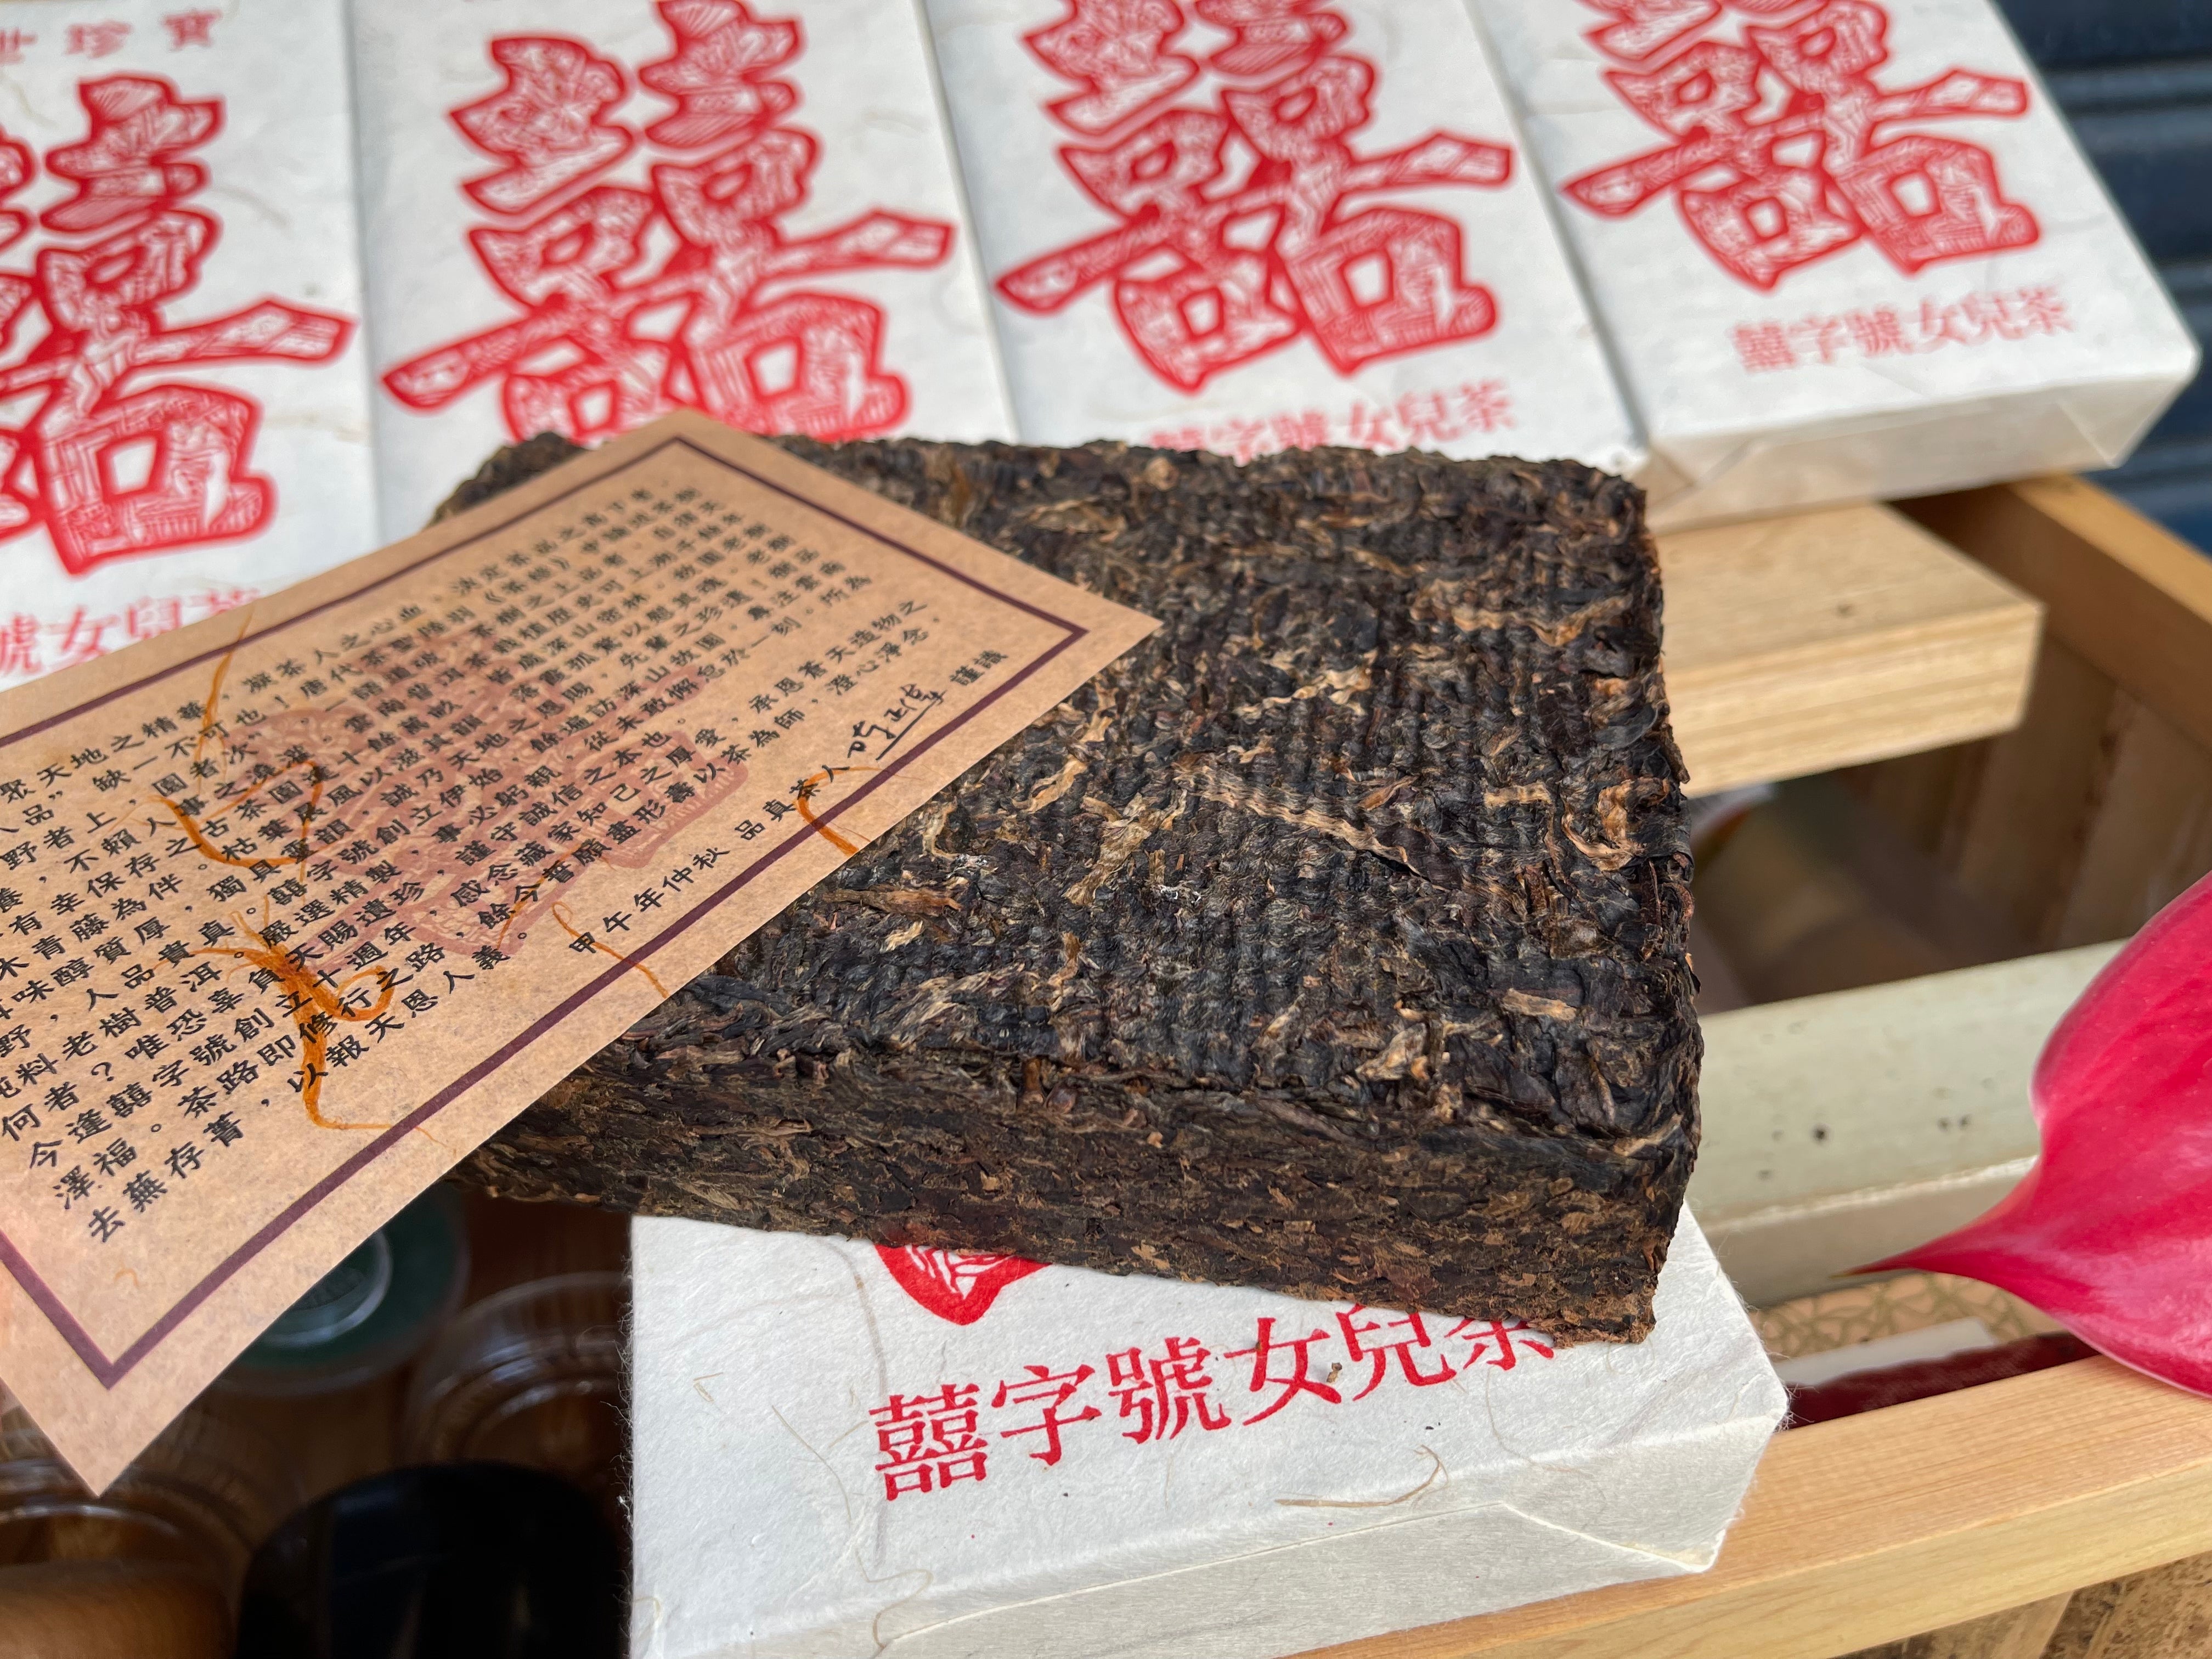 世珍寶
囍
囍
囍
囍
號女兒茶
囍字號女兒茶
囍字號女兒茶
聚天地之精華，凝茶人之心血，決定茶品之高下者
品”缺一不可也！唐代茶聖陸羽《茶經》
野者上，園者次”，一語道破
養，不賴人事之澆灌。雲南普洱茶
有幸保存之古茶園達十餘萬畝
青藤為伴。枯葉晨風以滋其韻
味醇質厚，獨具靈韻，誠乃天地之恩賜，先輩之珍遺！
野，人品貴真。囍字號創立伊始，餘遍訪深山故園，專注雲南
純料老樹普洱。嚴選精製，事必躬親，從未敢懈怠於一刻。所為
何者？唯恐辜負天賜遺珍，謹守誠信之本也。
今逢囍字號創立十週年，感念藏家知己之厚愛，承恩蒼天造物之
澤福。茶路即修行之路，餘今誓願盡形壽以茶為師，澄心淨念，
去蕪存菁，以報天恩人義。
甲午年仲秋 品真茶人 謹識
囍字號女兒茶